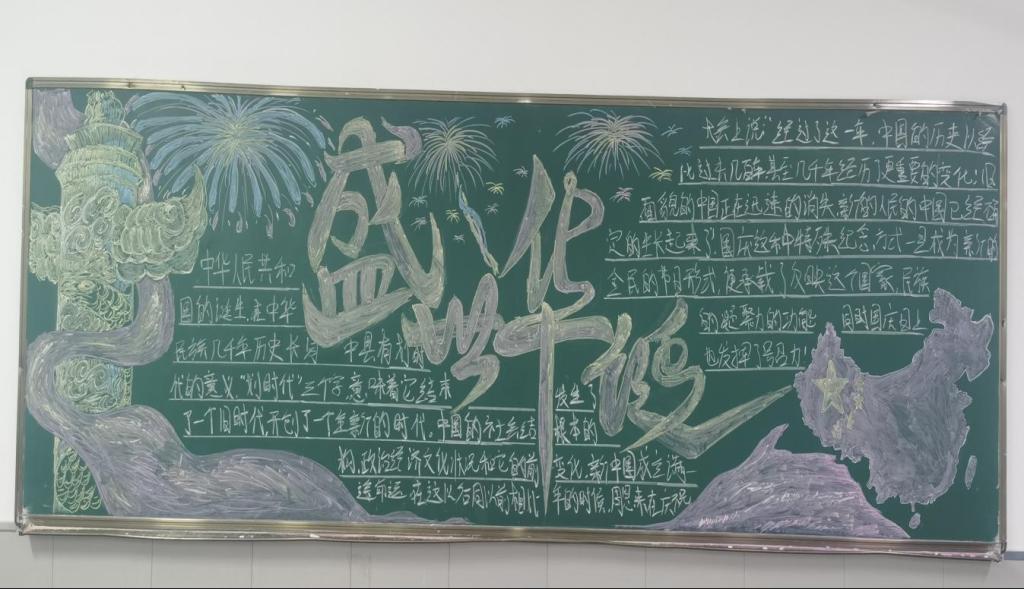 盛世华诞
中华人民共和
国的诞生,在中华
民族几千年历史长 中具有划时
代的意义,"划时代"三个字意味着它结束
了一个旧时代,开创了一个全新的时代。中国的社会结
构,政治经济文化状况和它的前
途命运,在这以后同以前相比
发生了
根本的
变化,新中国成立满一
年的时候,周恩来在庆祝
大会上说"经过了这一年,中国的历史
比过去几百年甚至几千年经历了更重要的变化,旧
面貌的中国正在迅速的消失,新的人民的中国已经确
定的生长起来了国庆这种特殊纪念方式一旦成为新的
全民的节日形式,便承载了反映这个国家,民族
的凝聚力的功能 同时国庆日上
也发挥了号召力